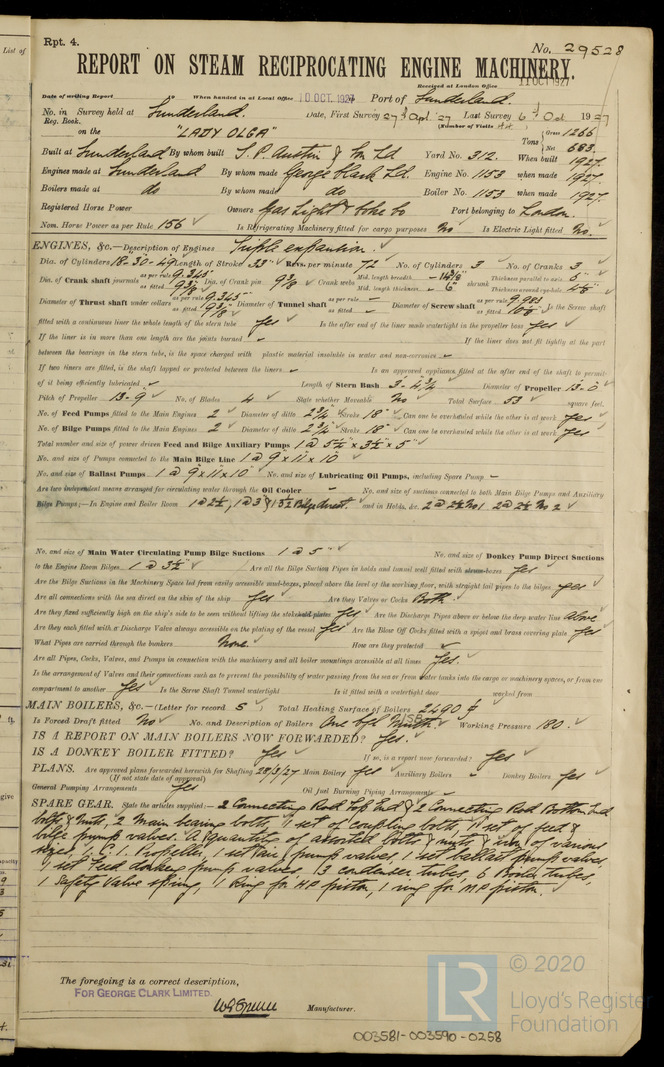 List of
Rpt. 4.
No. 29528
REPORT ON STEAM RECIPROCATING ENGINE MACHINERY.
Received at London Office 11 OCT 1927
Date of writing Report 19 When handed in at Local Office 10 OCT. 1927 Port of Sunderland.
No. in Survey held at Sunderland. Date, First Survey 27th Apl. '27 Last Survey 6th Oct 1927
Reg. Book. (Number of Visits 44
on the "LADY OLGA" Tons Gross 1266
Net 683.
Built at Sunderland By whom built S. P. Austin & Son Ld Yard No. 312. When built 1927.
Engines made at Sunderland By whom made George Clark Ld. Engine No. 1153 when made 1927.
Boilers made at do By whom made do Boiler No. 1153 when made 1927.
Registered Horse Power Owners Gas Light & Coke Co Port belonging to London.
Nom. Horse Power as per Rule 156 Is Refrigerating Machinery fitted for cargo purposes No Is Electric Light fitted No.
ENGINES, &c.—Description of Engines Triple expansion.
Dia. of Cylinders 18-30-49 Length of Stroke 33" Revs. per minute 72 No. of Cylinders 3 No. of Cranks 3
Dia. of Crank shaft journals as per rule 9.345" as fitted 9 3/8" Dia. of Crank pin 9 3/8 Crank webs Mid. length breadth Mid. length thickness 6" shrunk Thickness parallel to axis 6" Thickness around eye-hole
Diameter of Thrust shaft under collars as per rule 9.345 as fitted 9 3/8" Diameter of Tunnel shaft as per rule – as fitted – Diameter of Screw shaft as per rule 9.983 as fitted Is the Screw shaft
fitted with a continuous liner the whole length of the stern tube Yes Is the after end of the liner made watertight in the propeller boss Yes
If the liner is in more than one length are the joints burned – If the liner does not fit tightly at the part
between the bearings in the stern tube, is the space charged with plastic material insoluble in water and non-corrosive –
If two liners are fitted, is the shaft lapped or protected between the liners – Is an approved appliance fitted at the after end of the shaft to permit
of it being efficiently lubricated – Length of Stern Bush 3'-4 3/4 Diameter of Propeller 13-0
Pitch of Propeller 13-9 No. of Blades 4 State whether Moveable No Total Surface 53 square feet.
No. of Feed Pumps fitted to the Main Engines 2 Diameter of ditto 2 3/4" Stroke 18" Can one be overhauled while the other is at work Yes
No. of Bilge Pumps fitted to the Main Engines 2 Diameter of ditto 2 3/4" Stroke 18" Can one be overhauled while the other is at work Yes
Total number and size of power driven Feed and Bilge Auxiliary Pumps 1 @ 5 1/2" x 3 1/2 x 5"
No. and size of Pumps connected to the Main Bilge Line 1 @ 9 x 11 x 10
No. and size of Ballast Pumps 1 @ 9 x 11 x 10 No. and size of Lubricating Oil Pumps, including Spare Pump –
Are two independent means arranged for circulating water through the Oil Cooler – No. and size of suctions connected to both Main Bilge Pumps and Auxiliary
Bilge Pumps;—In Engine and Boiler Room 1 @ 2 1/2, 1 @ 3 & 1 3 1/2 Bilge direct. and in Holds, &c. 2 @ 2 1/2 No 1 2 @ 2 1/2 No 2
No. and size of Main Water Circulating Pump Bilge Suctions 1 @ 5" No. and size of Donkey Pump Direct Suctions
to the Engine Room Bilges 1 @ 3 1/2" Are all the Bilge Suction Pipes in holds and tunnel well fitted with strum-boxes yes
Are the Bilge Suctions in the Machinery Space led from easily accessible mud-boxes, placed above the level of the working floor, with straight tail pipes to the bilges yes
Are all connections with the sea direct on the skin of the ship Yes Are they Valves or Cocks Both.
Are they fixed sufficiently high on the ship's side to be seen without lifting the stokehold plates Yes Are the Discharge Pipes above or below the deep water line above
Are they each fitted with a Discharge Valve always accessible on the plating of the vessel Yes Are the Blow Off Cocks fitted with a spigot and brass covering plate Yes
What Pipes are carried through the bunkers None. How are they protected –
Are all Pipes, Cocks, Valves, and Pumps in connection with the machinery and all boiler mountings accessible at all times Yes.
Is the arrangement of Valves and their connections such as to prevent the possibility of water passing from the sea or from water tanks into the cargo or machinery spaces, or from one
compartment to another Yes Is the Screw Shaft Tunnel watertight Is it fitted with a watertight door worked from
MAIN BOILERS, &c.—(Letter for record S Total Heating Surface of Boilers 2490 ¢
Is Forced Draft fitted No No. and Description of Boilers Working Pressure 180.
IS A REPORT ON MAIN BOILERS NOW FORWARDED? Yes.
IS A DONKEY BOILER FITTED? Yes If so, is a report now forwarded? Yes
PLANS. Are approved plans forwarded herewith for Shafting 28/3/27 Main Boilers yes Auxiliary Boilers – Donkey Boilers Yes
(If not state date of approval)
General Pumping Arrangements Yes Oil fuel Burning Piping Arrangements –
SPARE GEAR. State the articles supplied:— 2 Connecting Rod Top End & 2 Connecting Rod Bottom End
bolts & nuts, 2 Main bearing bolts, 1 set of coupling bolts, 1 set of feed &
bilge pump valves. A quantity of assorted bolts & nuts & iron of various
sizes. 1 C.I. Propeller, 1 set air pump valves, 1 set ballast pump valves
1 set feed donkey pump valves. 3 condenser tubes, 6 Boiler tubes,
1 Safety Valve spring, 1 Ring for H.P piston, 1 ring for M.P piston.
The foregoing is a correct description,
FOR GEORGE CLARK LIMITED.
Manufacturer.
© 2020
LR
Lloyd's Register
Foundation
003581-003590-0258